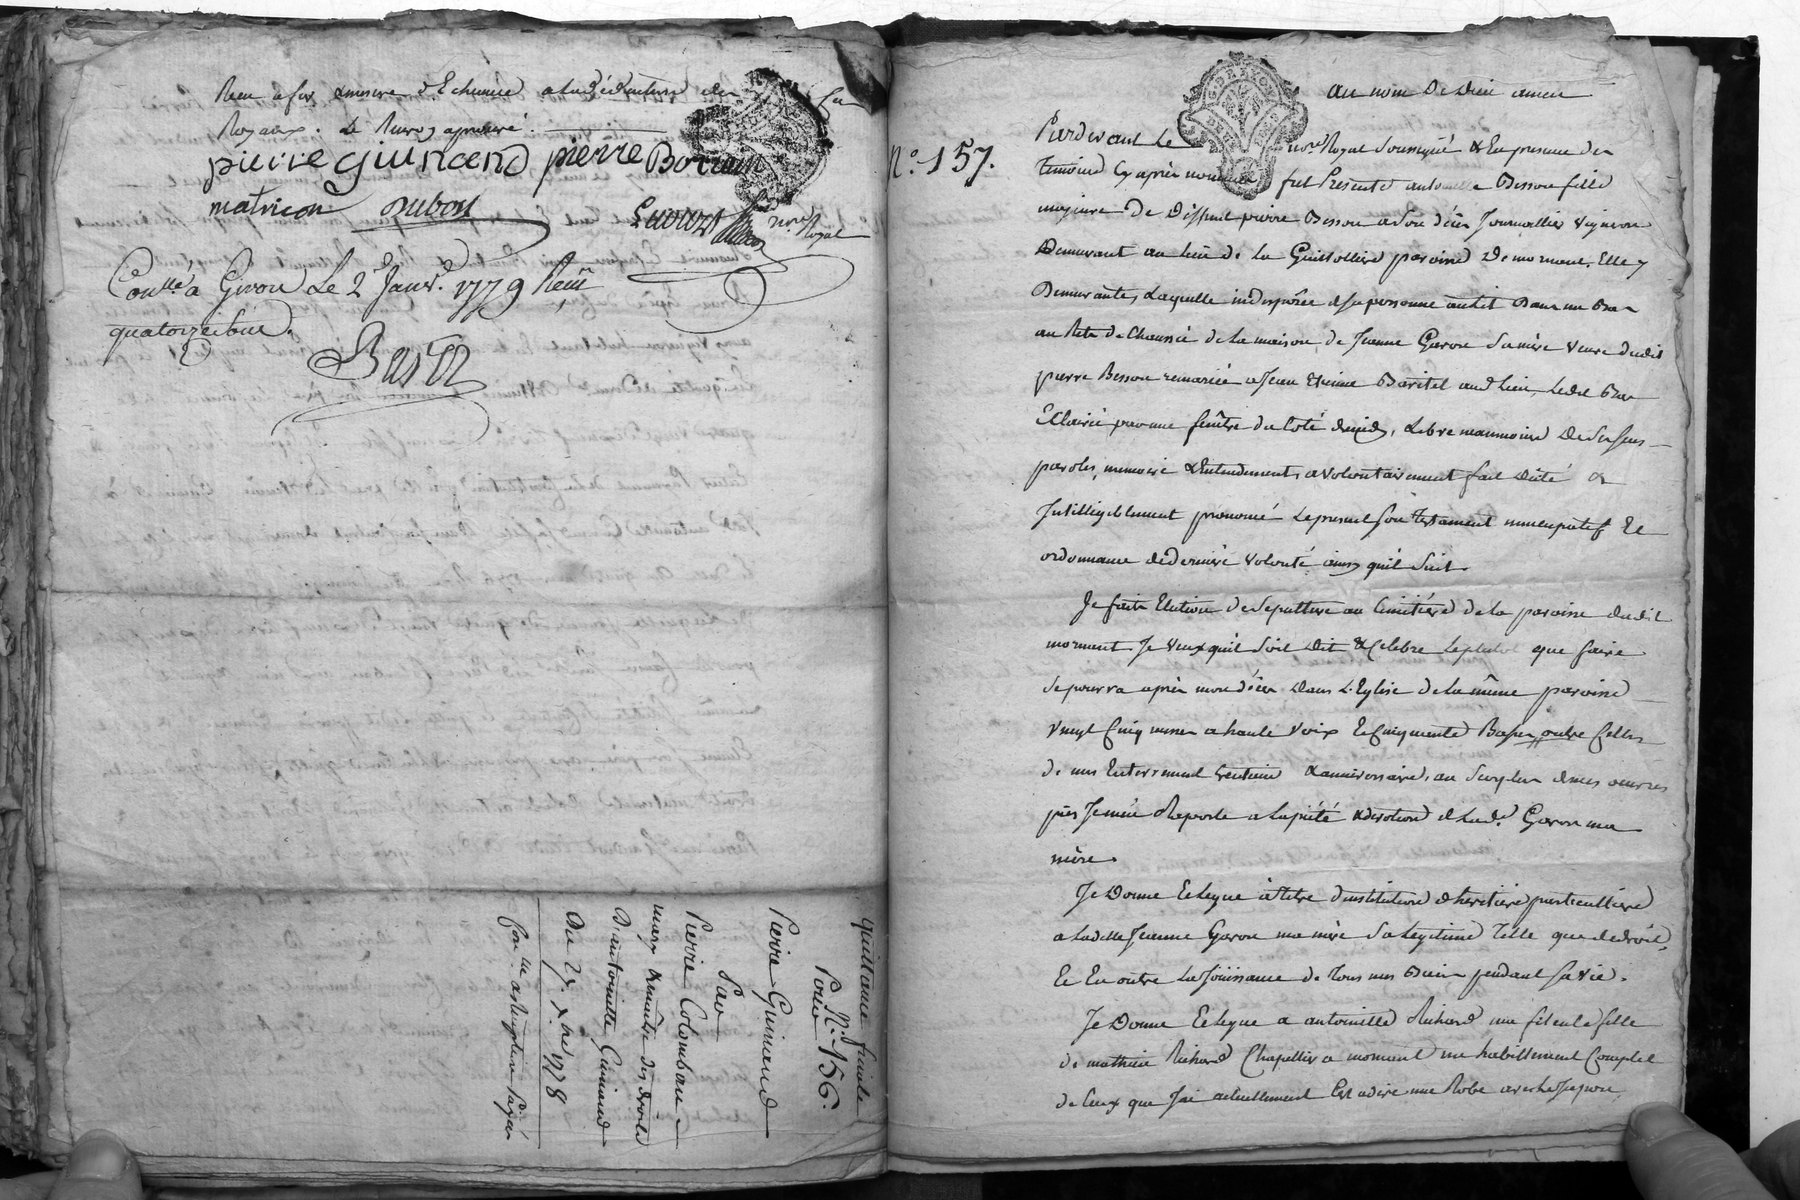 Royaux . Le
pierre guinand pierre
matricon dubost
Royal
Con.llé a Givors Le 2.e Janv.r 1779 Recu
quatorze sous
quittance finale
N.o 156.
Pour
Pierre Guinand
Par
Pierre Colombau
mary &maître des droits
D'antoinette Guinand
Du 27. x.bre 1778
N.o 157.
au nom De Dieu amen
Pardevant Le no.re Royal Soussigné & En presence des
temoins Cy après nommés fut Presente antoinette Besson fille
majeure De Deffunt pierre Besson a Son décès Journallier vigneron
Demeurant au lieu de La Guillottiere paroisse De mornant, Elle y
Demeurante, Laquelle indisposée de sa personne au lit Dans un Bas
au Retz de Chaussée de La maison de Jeanne Garon Sa mère veuve dudit
pierre Besson remariée a Jean Etienne Baritel aud.t Lieu, Ledit Bas
Eclairé par une fenêtre du Coté de midy, Libre neanmoins De Ses sens
parole, memoire &Entendements a volontairement fait Dicté &
Intelligiblement prononcé Le present Son testament nuncupatif Et
ordonnance de derniere volonté ainsy qu'il Suit.
Je fait Election de Sepulture au Cimitiere de La paroisse dudit
mornant. Je veux qu'il Soit Dit & Celebre Leplutot que faire
Se pourra après mon décès Dans L'Eglise de La même paroisse
vingt Cinq messes a haute voix Et Cinquante Basses, outre Celles
de mes Enterrement trentaine &anniversaire, au Surplus de mes oeuvres
pies Je m'en Raporte a La piété &devotion de Lad.e Garon ma
mère.
Je Donne Et Legue a titre d'institution d'heritiere particulliere
a Ladite Jeanne Garon ma mère Sa Legitime Telle que de droit,
Et En outre La Jouissance de Tous mes Biens pendant Sa vie.
Je Donne Et Legue a antoinette Richard ma filleule fille
de mathieu Richard Chapellier a mornant un habillement Complet
de Ceux que J'ai actuellement C'est adire une Robe avec Le Jupon,